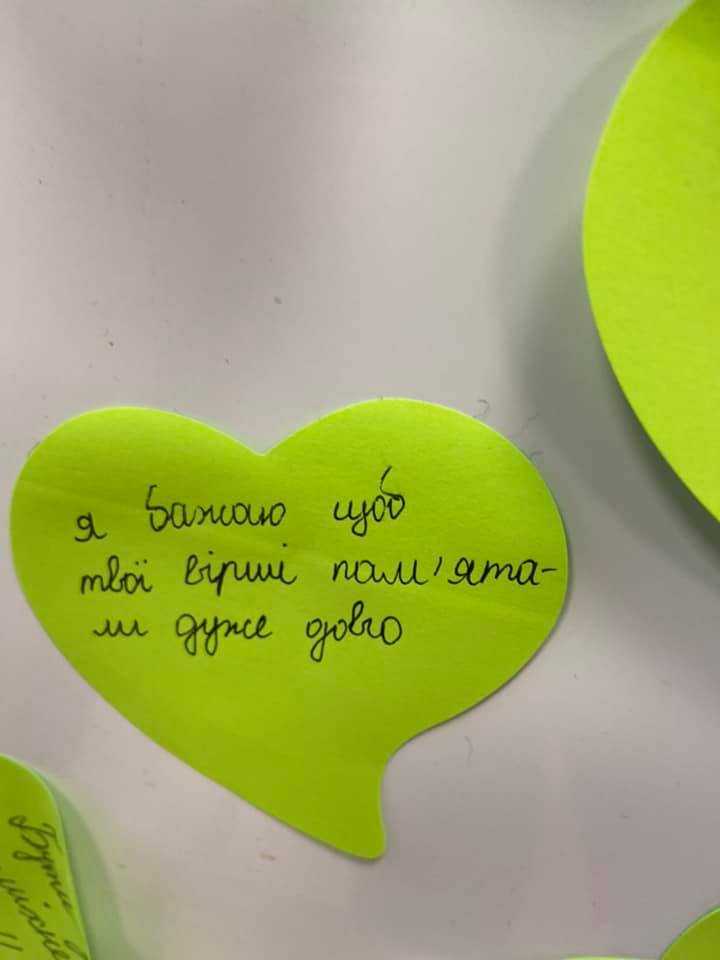 я бажаю щоб
твої вірші пам'ята-
ли дуже довго
Бути
!!